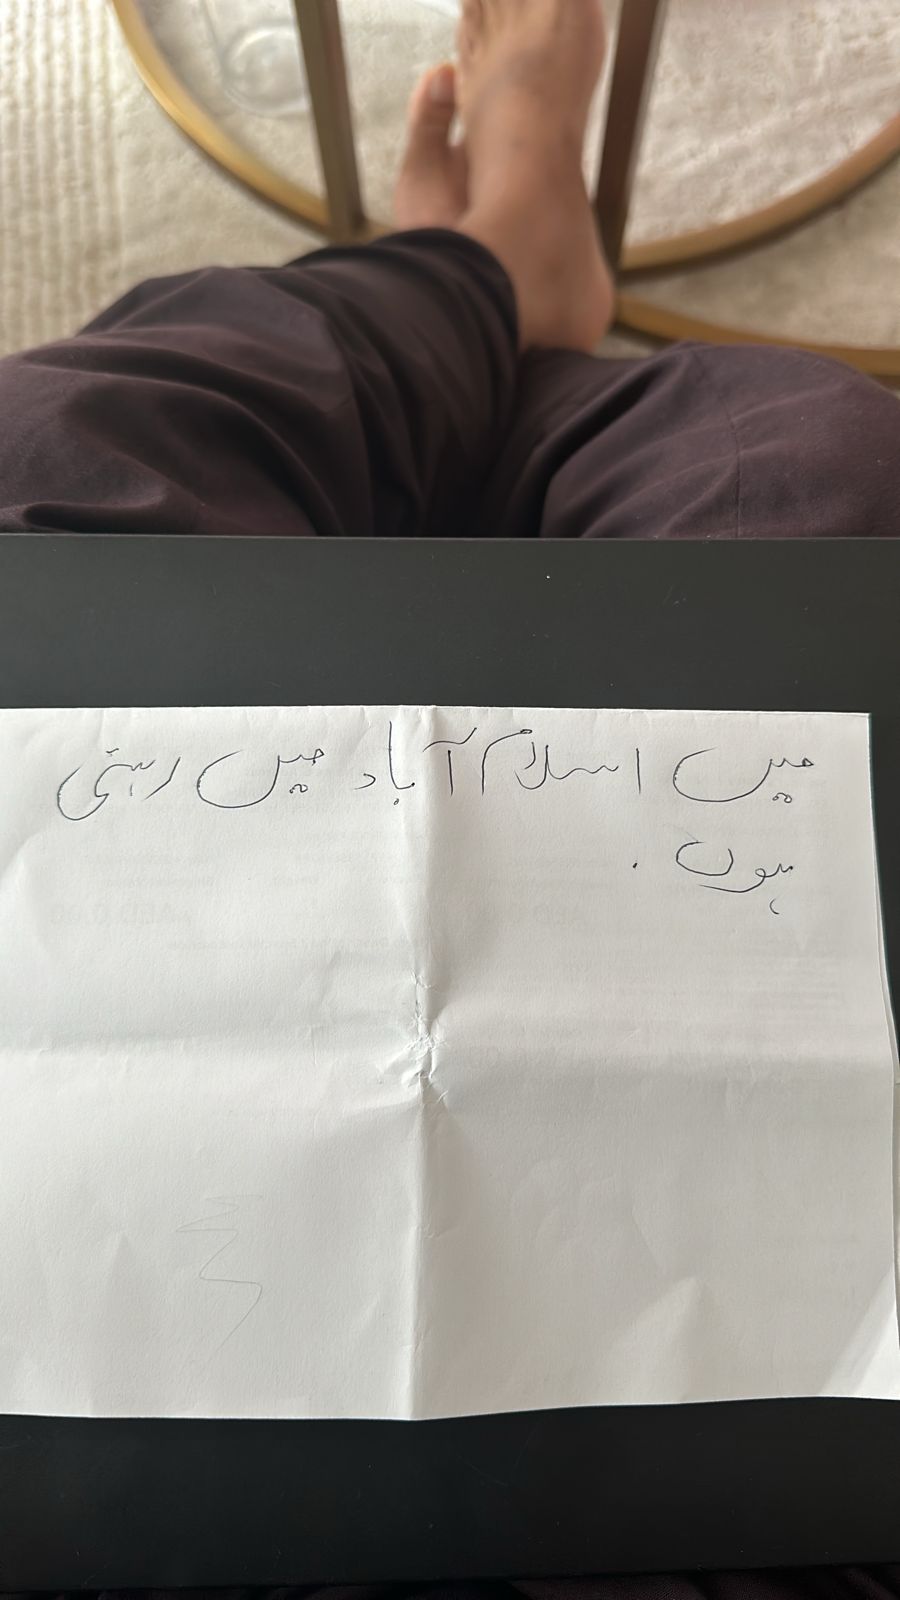 میں اسلام آباد میں رہتی
ہوں .